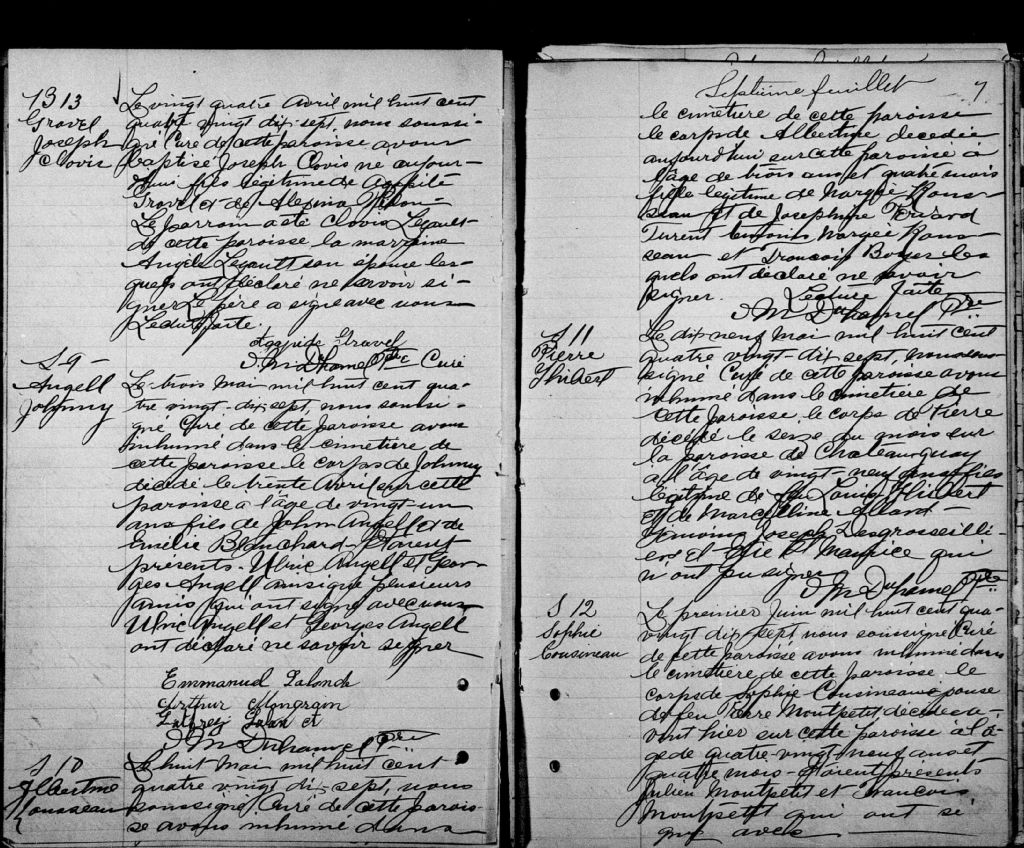 B 13
Gravel
Joseph
Clovis
Le vingt quatre Avril mil huit cent
quatre vingt dix-sept, nous soussi-
gné Curé de cette paroisse avons
baptisé Joseph Clovis né aujour-
d'hui fils légitime de Agapite
Gravel et de Alexina
Le parrain a été Clovis Legault
de cette paroisse la marraine
Angele Legault son épouse les-
quels ont déclaré ne savoir si-
gner Le père a signé avec nous
Lecture faite.
Agapide Gravel
J M Duhamel Ptre Curé
S 9 -
Angell
Johnny
Le trois Mai mil huit cent qua-
tre vingt-dix-sept, nous soussi-
gné Curé de cette paroisse avons
inhumé dans le cimetière de
cette paroisse le corps de Johnny
décédé le trente Avril sur cette
paroisse à l'âge de vingt-un
ans fils de John Angell et de
Emélie Blanchard Etaient
présents - Ulric Angell et Geor-
ges Angell ainsi que plusieurs
amis qui ont signé avec nous
Ulric Angell et Georges Angell
ont déclaré ne savoir signer
Emmanuel Lalonde
Arthur Mongrain
J M Duhamel Ptre
S 10
Albertine
Rousseau
Le huit Mai mil huit cent
quatre vingt dix-sept, nous
soussigné Curé de cette parois-
se avons inhumé dans
Septième feuillet 7
le cimetière de cette paroisse
le corps de Albertine décédée
aujourd'hui sur cette paroisse à
l'âge de trois ans et quatre mois
fille légitime de Narzée Rous-
seau et de Josephine
Furent témoins Narzée Rous-
seau et Francois Boyer les
quels ont déclaré ne savoir
signer. Lecture faite
J M Duhamel Ptre
S 11
Pierre
Thibert
Le dix-neuf Mai mil huit cent
quatre vingt-dix sept, nous sous-
signé Curé de cette paroisse avons
inhumé dans le cimetière de
cette paroisse le corps de Pierre
décédé le seize du mois sur
la paroisse de Chateauguay
à l'âge de vingt-neuf ans fils
légitime de feu Louis Thibert
et de Marcelline Allard -
Témoins Joseph Desgroseilli-
ers et Elie St Maurice qui
n'ont pu signer
J M Duhamel Ptre
S 12
Sophie
Cousineau
Le premier Juin mil huit cent qua-
vingt dix-sept nous soussigné Curé
de cette paroisse avons inhumé dans
le cimetière de cette paroisse le
corps de Sophie Cousineau épouse
de feu Pierre Montpetit, décédée a-
vant hier sur cette paroisse à l'â-
ge de quatre-vingt neuf ans et
quatre mois - Etaient présents
Julien Montpetit et Francois
Montpetit qui ont si
gné avec